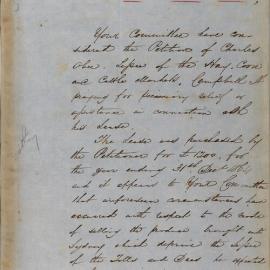 Your Committee have con
sidered the Petition of Charles
Lessee of the Hay, Corn
and Cattle Markets, Campbell St
praying for pecuniary relief or
assistance in connection with
his Lease.
The Lease was purchased by
the Petitioner for £ for
the year ending 31st Decr
and it appears to Your Committee
that unforeseen circumstances have
occurred with respect to the mode
of selling the produce brought into
Sydney which deprive the Lessee
of the Tolls and Dues he expected